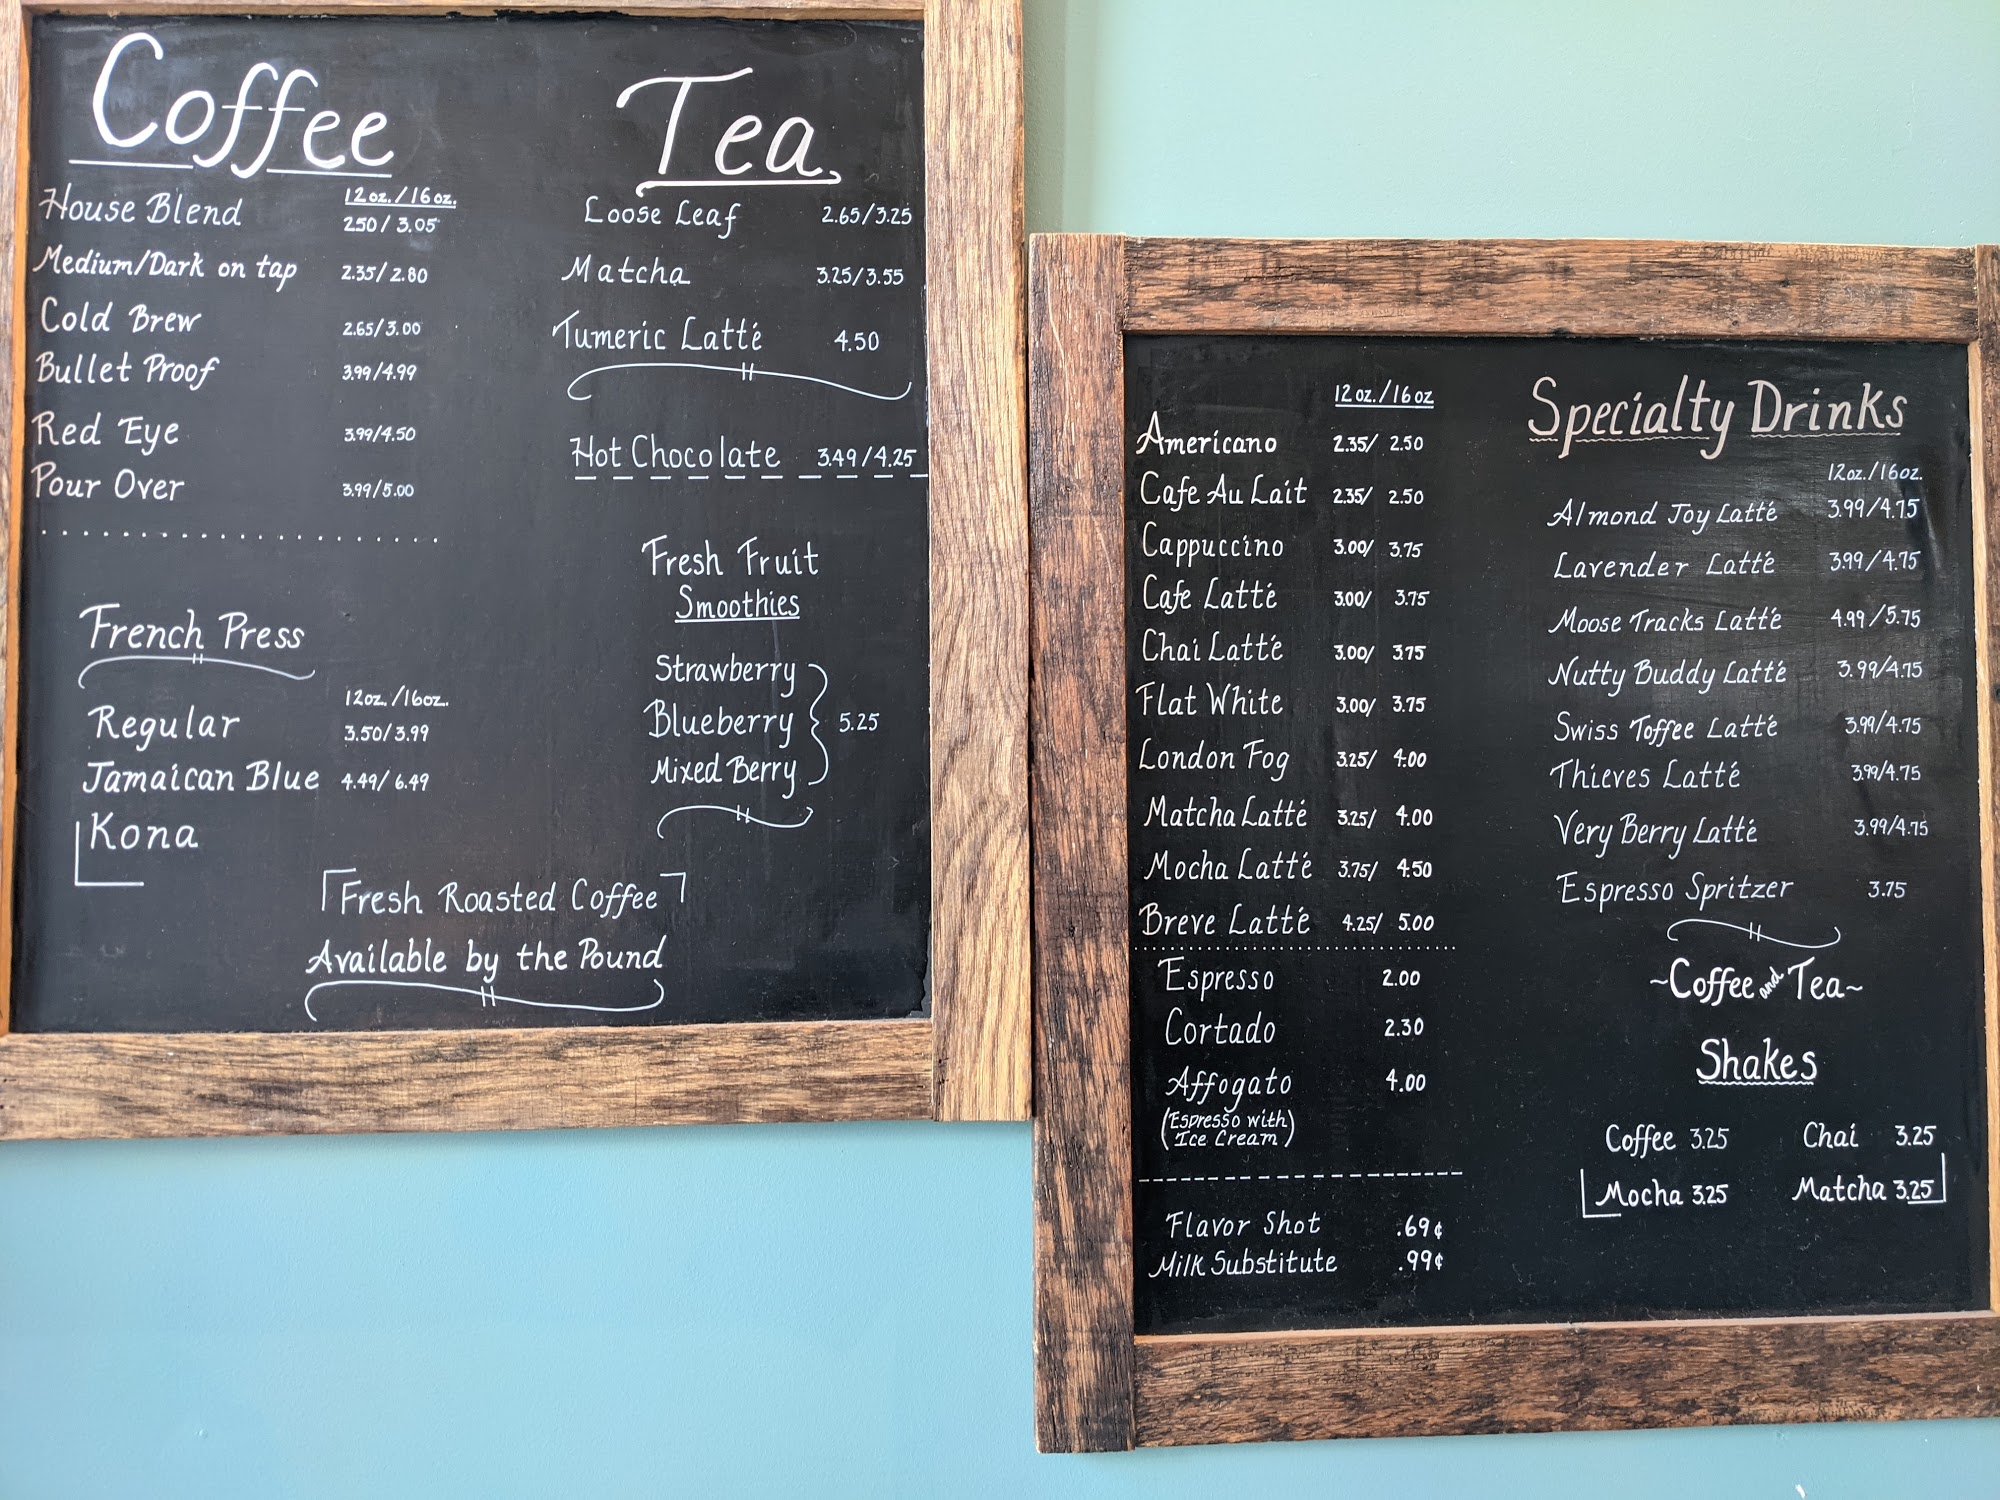 Coffee
12oz./16oz.
House Blend 2.50/3.05
Medium/Dark on tap 2.35/2.80
Cold Brew 2.65/3.00
Bullet Proof 3.99/4.99
Red Eye 3.99/4.50
Pour Over 3.99/5.00
French Press
12oz./16oz.
Regular 3.50/3.99
Jamaican Blue 4.49/6.49
Kona
Tea
Loose Leaf 2.65/3.25
Matcha 3.25/3.55
Tumeric Latté 4.50
Hot Chocolate 3.49/4.25
Fresh Fruit
Smoothies
Strawberry
Blueberry 5.25
Mixed Berry
Fresh Roasted Coffee
Available by the Pound
12oz./16oz
Americano 2.35/ 2.50
Cafe Au Lait 2.35/ 2.50
Cappuccino 3.00/ 3.75
Cafe Latté 3.00/ 3.75
Chai Latté 3.00/ 3.75
Flat White 3.00/ 3.75
London Fog 3.25/ 4.00
Matcha Latté 3.25/ 4.00
Mocha Latté 3.75/ 4.50
Breve Latté 4.25/ 5.00
Espresso 2.00
Cortado 2.30
Affogato 4.00
(Espresso with
Ice Cream)
Flavor Shot .69¢
Milk Substitute .99¢
Specialty Drinks
12oz./16oz.
Almond Joy Latté 3.99/4.75
Lavender Latté 3.99/4.75
Moose Tracks Latté 4.99/5.75
Nutty Buddy Latté 3.99/4.75
Swiss Toffee Latté 3.99/4.75
Thieves Latté 3.99/4.75
Very Berry Latté 3.99/4.75
Espresso Spritzer 3.75
~Coffee and Tea~
Shakes
Coffee 3.25 Chai 3.25
Mocha 3.25 Matcha 3.25